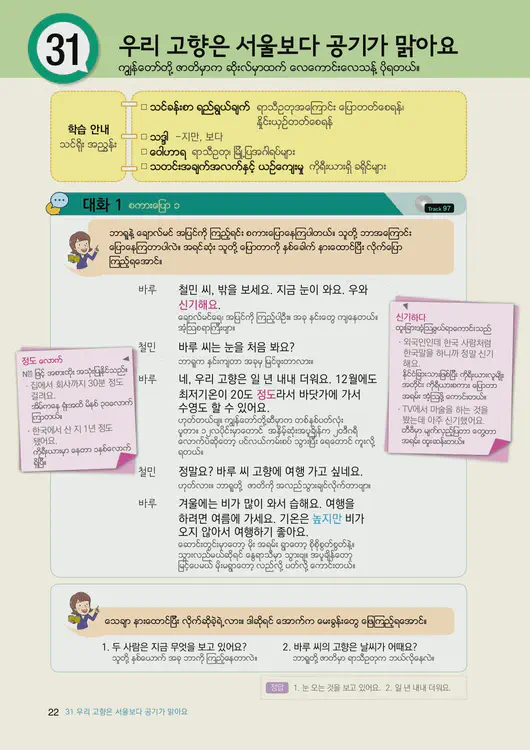 31
우리 고향은 서울보다 공기가 맑아요
ကျွန်တော်တို့ ဇာတိမှာက ဆိုးလ်မှာထက် လေကောင်းလေသန့် ပိုရတယ်။
학습 안내
သင်ရိုး အညွှန်း
□ သင်ခန်းစာ ရည်ရွယ်ချက် ရာသီဥတုအကြောင်း ပြောတတ်စေရန်၊
နှိုင်းယှဉ်တတ်စေရန်
□ သဒ္ဒါ -지만, 보다
□ ဝေါဟာရ ရာသီဥတု၊ မြို့ပြအင်္ဂါရပ်များ
□ သတင်းအချက်အလက်နှင့် ယဉ်ကျေးမှု ကိုရီးယားရှိ ခရိုင်များ
대화 1 စကားပြော ၁
Track 97
ဘာရူနဲ့ ချောလ်မင် အပြင်ကို ကြည့်ရင်း စကားပြောနေကြပါတယ်။ သူတို့ ဘာအကြောင်း
ပြောနေကြတာပါလဲ။ အရင်ဆုံး သူတို့ ပြောတာကို နှစ်ခေါက် နားထောင်ပြီး လိုက်ပြော
ကြည့်ရအောင်။
바루 철민 씨, 밖을 보세요. 지금 눈이 와요. 우와
신기해요.
ချောလ်မင်ရေ၊ အပြင်ကို ကြည့်ပါဦး။ အခု နှင်းတွေ ကျနေတယ်။
အံ့ဩစရာကြီးဗျာ။
철민 바루 씨는 눈을 처음 봐요?
ဘာရူက နှင်းကျတာ အခုမှ မြင်ဖူးတာလား။
바루 네, 우리 고향은 일 년 내내 더워요. 12월에도
최저기온이 20도 정도라서 바닷가에 가서
수영도 할 수 있어요.
ဟုတ်တယ်ဗျ။ ကျွန်တော်တို့ဆီမှာက တစ်နှစ်ပတ်လုံး
ပူတာ။ ၁၂လပိုင်းမှာတောင် အနိမ့်ဆုံးအပူချိန်က ၂၀ဒီဂရီ
လောက်ပဲဆိုတော့ ပင်လယ်ကမ်းစပ် သွားပြီး ရေတောင် ကူးလို့
ရတယ်။
철민 정말요? 바루 씨 고향에 여행 가고 싶네요.
ဟုတ်လား။ ဘာရူတို့ ဇာတိကို အလည်သွားချင်လိုက်တာဗျာ။
바루 겨울에는 비가 많이 와서 습해요. 여행을
하려면 여름에 가세요. 기온은 높지만 비가
오지 않아서 여행하기 좋아요.
ဆောင်းတွင်းမှာတော့ မိုး အရမ်း ရွာတော့ စိုစိုစွတ်စွတ်နဲ့။
သွားလည်မယ်ဆိုရင် နွေရာသီမှာ သွားဗျ။ အပူချိန်တော့
မြင့်ပေမယ့် မိုးမရွာတော့ လည်လို့ ပတ်လို့ ကောင်းတယ်။
정도 လောက်
N၏ ဖြင့် အစားထိုး အသုံးပြုနိုင်သည်။
- 집에서 회사까지 30분 정도
걸려요.
အိမ်ကနေ ရုံးအထိ မိနစ် ၃၀လောက်
ကြာတယ်။
- 한국에서 산 지 1년 정도
됐어요.
ကိုရီးယားမှာ နေတာ ၁နှစ်လောက်
ရှိပြီ။
신기하다
ထူးခြားအံ့ဩဖွယ်ရာကောင်းသည်
- 외국인인데 한국 사람처럼
한국말을 하니까 정말 신기
해요.
နိုင်ငံခြားသားဖြစ်ပြီး ကိုရီးယားလူမျိုး
အတိုင်း ကိုရီးယားစကား ပြောတာ
အရမ်း အံ့ဩဖို့ ကောင်းတယ်။
- TV에서 마술을 하는 것을
봤는데 아주 신기했어요.
တီဗီမှာ မျက်လှည့်ပြတာ တွေ့တာ
အရမ်း ထူးဆန်းတယ်။
သေချာ နားထောင်ပြီး လိုက်ဆိုခဲ့ရဲ့လား။ ဒါဆိုရင် အောက်က မေးခွန်းတွေ ဖြေကြည့်ရအောင်။
1. 두 사람은 지금 무엇을 보고 있어요? 2. 바루 씨의 고향은 날씨가 어때요?
သူတို့ နှစ်ယောက် အခု ဘာကို ကြည့်နေတာလဲ။ ဘာရူတို့ ဇာတိမှာ ရာသီဥတုက ဘယ်လိုနေလဲ။
정답 1. 눈 오는 것을 보고 있어요. 2. 일 년 내내 더워요.
22 31 우리 고향은 서울보다 공기가 맑아요